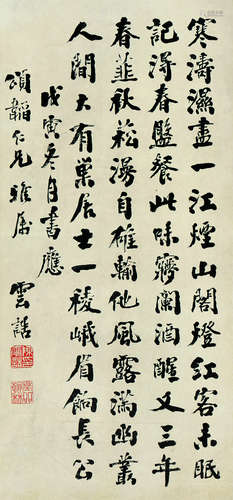 寒濤濕盡一江煙山閣燈紅客未眠
記得春盤餐此味齋闌酒醒又三年
春韮秋菘漫自雄輸他風露滿幽叢
人間大有巢居士一稜峨眉餉長公
戊寅冬月書應
頌韜仁兄雅屬
雲誥